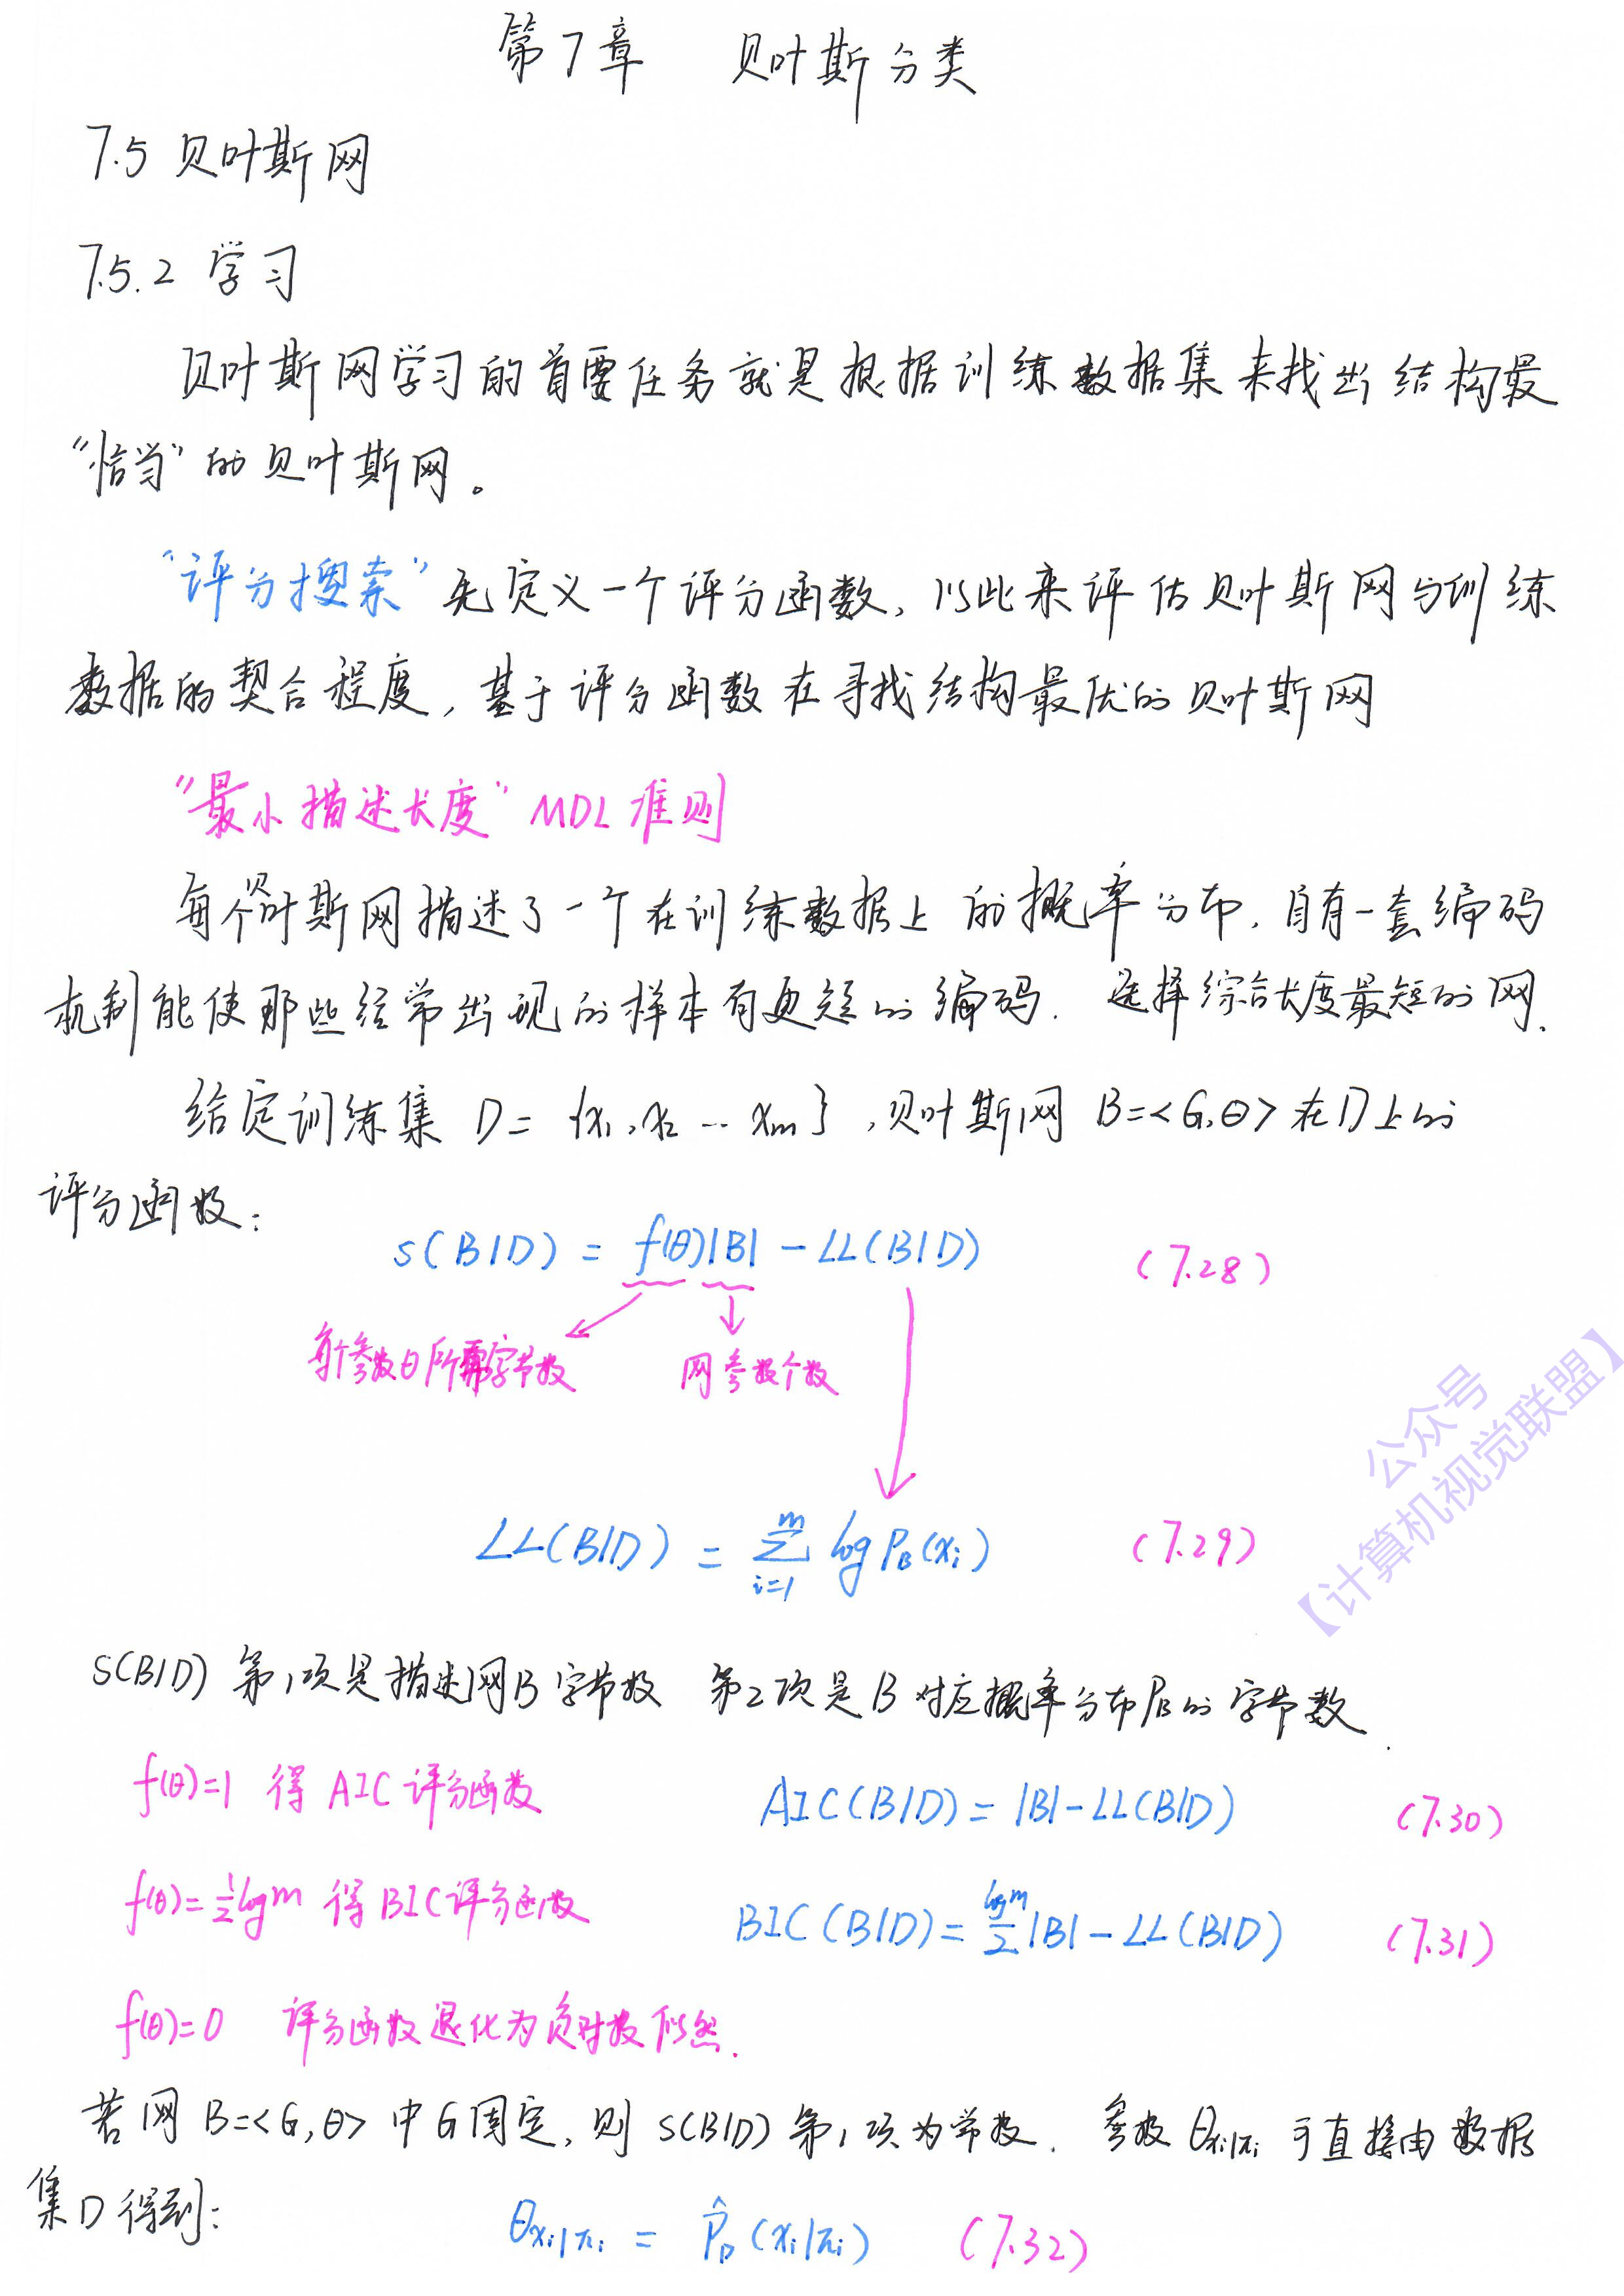 第7章 贝叶斯分类
7.5 贝叶斯网
7.5.2 学习
贝叶斯网学习的首要任务就是根据训练数据集来找出结构最
“恰当”的贝叶斯网。
“评分搜索”先定义一个评分函数,以此来评估贝叶斯网与训练
数据的契合程度,基于评分函数在寻找结构最优的贝叶斯网
“最小描述长度”MDL准则
每个贝叶斯网描述了一个在训练数据上的概率分布,自有一套编码
机制能使那些经常出现的样本有更短的编码. 选择综合长度最短的网.
给定训练集 D= {x₁,x₂ … xₘ},贝叶斯网 B=<G,θ>在D上的
评分函数:
s(B|D) = f(θ)|B| - LL(B|D) (7.28)
每个参数θ所需字节数 网参数个数
LL(B|D) = ∑ᵢ₌₁ᵐ log P_B(xᵢ) (7.29)
S(B|D) 第1项是描述网B字节数 第2项是B对应概率分布P_B的字节数.
f(θ)=1 得AIC评分函数 AIC(B|D) = |B| - LL(B|D) (7.30)
f(θ)=½logm 得BIC评分函数 BIC(B|D) = logm/2 |B| - LL(B|D) (7.31)
f(θ)=0 评分函数退化为负对数似然.
若网B=<G,θ>中G固定,则 S(B|D) 第1项为常数. 参数 θ_{xᵢ|πᵢ} 可直接由数据
集D得到:
θ_{xᵢ|πᵢ} = P̂_D(xᵢ|πᵢ) (7.32)
公众号
【计算机视觉联盟】